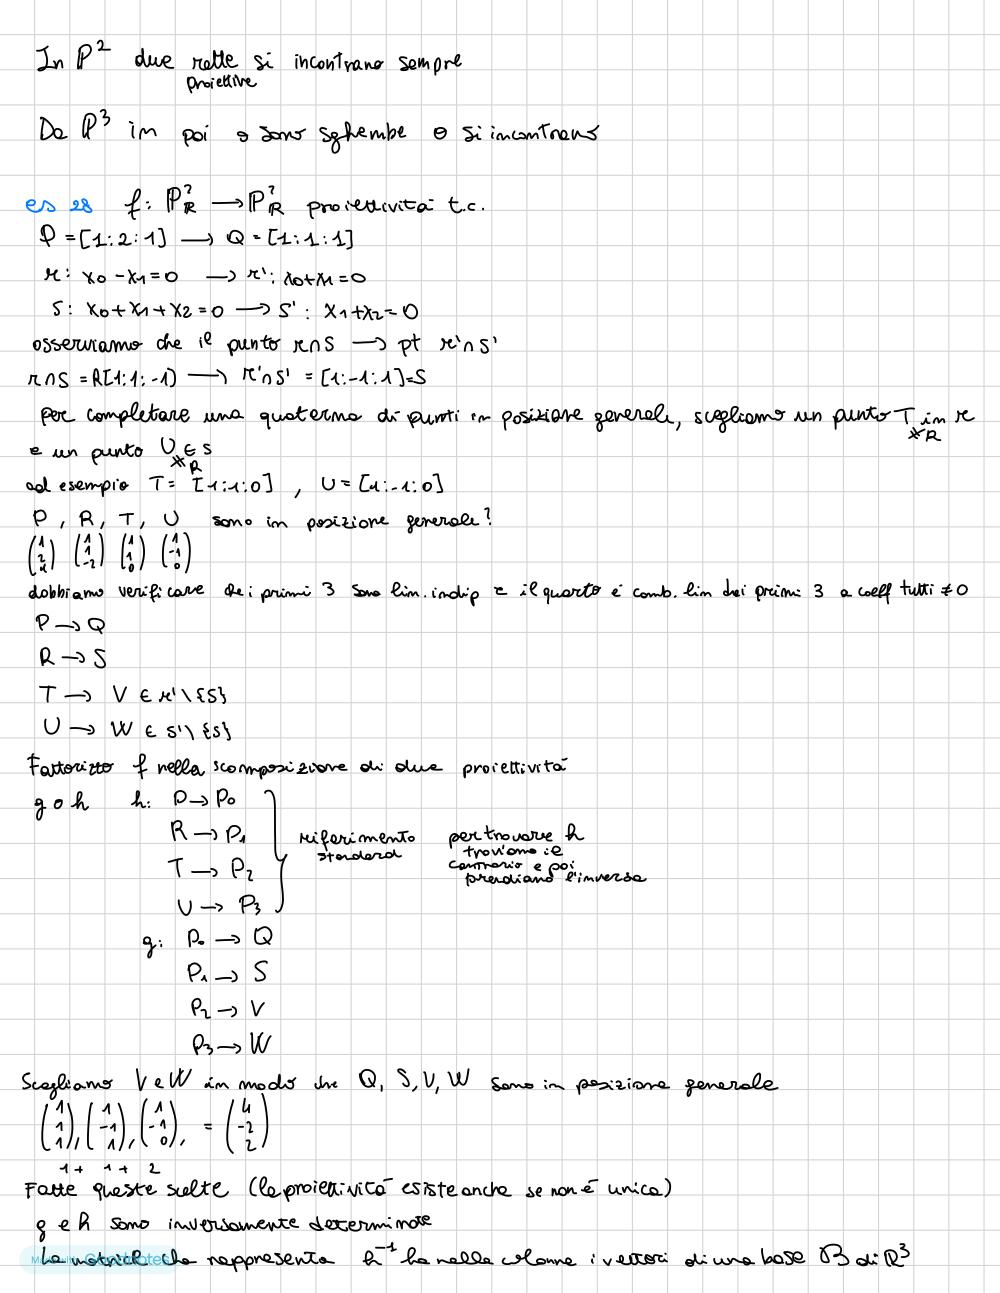 In P² due rette si incontrano sempre
proiettive
Da P³ in poi o sono sghembe o si incontrano
es 28 f: P²R → P²R proiettività t.c.
P = [1:2:1] → Q = [1:1:1]
r: x0 - x1 = 0 → r': x0 + x1 = 0
S: x0 + x1 + x2 = 0 → S': x1 + x2 = 0
osserviamo che il punto r∩S → pt r'∩S'
r∩S = R[1:1:-1) → r'∩S' = [1:-1:1]=S
per completare una quaterna di punti in posizione generale, scegliamo un punto T in r
≠R
e un punto U ∈ S
≠R
ad esempio T = [1:1:0] , U = [1:-1:0]
P , R , T , U sono in posizione generale?
(1 2 1) (1 1 -2) (1 1 0) (1 -1 0)
dobbiamo verificare che i primi 3 sono lin. indip e il quarto è comb. lin dei primi 3 a coeff tutti ≠ 0
P → Q
R → S
T → V ∈ r' \ {S}
U → W ∈ S' \ {S}
Fattorizzo f nella scomposizione di due proiettività
g o h h: P → P0
R → P1
riferimento standard
per trovare h troviamo il contrario e poi prendiamo l'inversa
T → P2
U → P3
g: P0 → Q
P1 → S
P2 → V
P3 → W
Scegliamo V e W in modo che Q, S, V, W sono in posizione generale
(1 1 1), (1 -1 1), (1 -1 0), = (4 -2 2)
1 + 1 + 2
Fatte queste scelte (la proiettività esiste anche se non è unica)
g e h sono inversamente determinate
La matrice che rappresenta h⁻¹ ha nelle colonne i vettori di una base B di R³